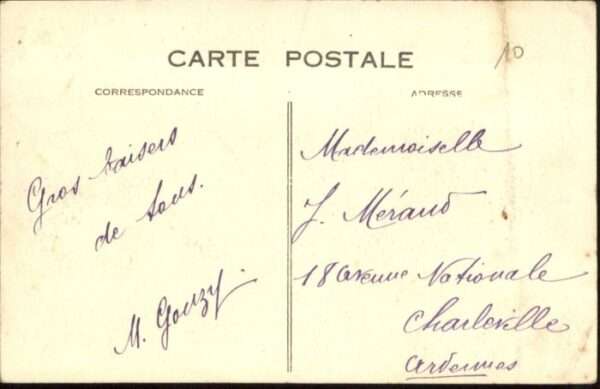 CARTE POSTALE
10
CORRESPONDANCE
Gros baisers
de tous.
M. Gouzy.
ADRESSE
Mademoiselle
J. Méraud
18 avenue Nationale
Charleville
Ardennes